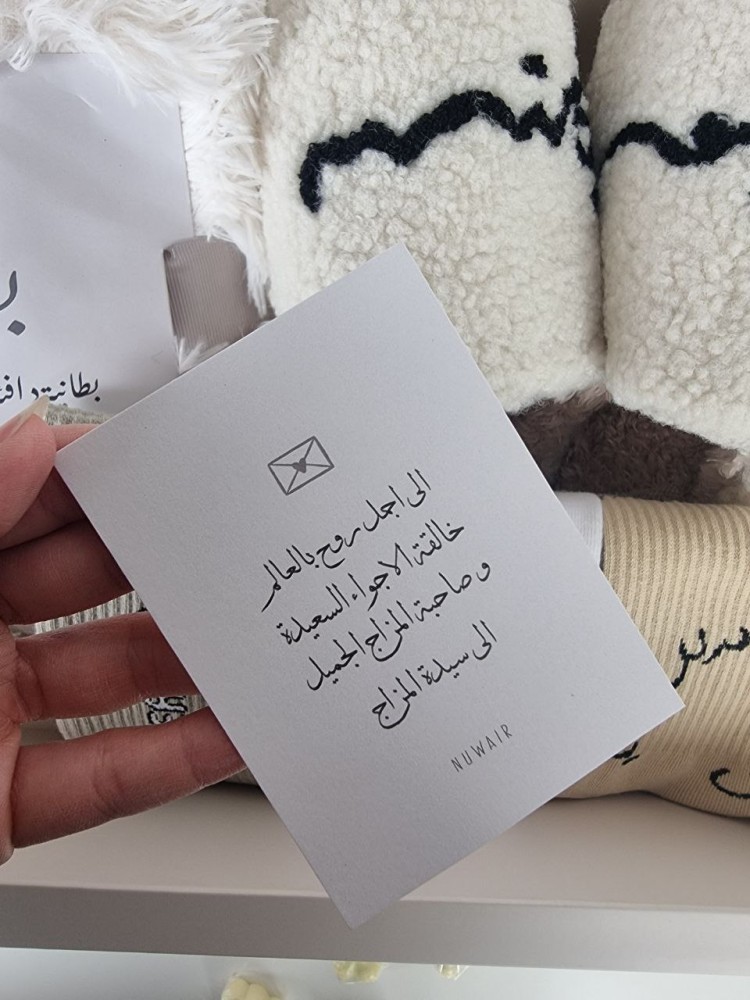 الى اجمل روح بالعالم
خالقة الاجواء السعيدة
و صاحبة المزاج الجميل
الى سيدة المزاج
NUWAIR
بطانية